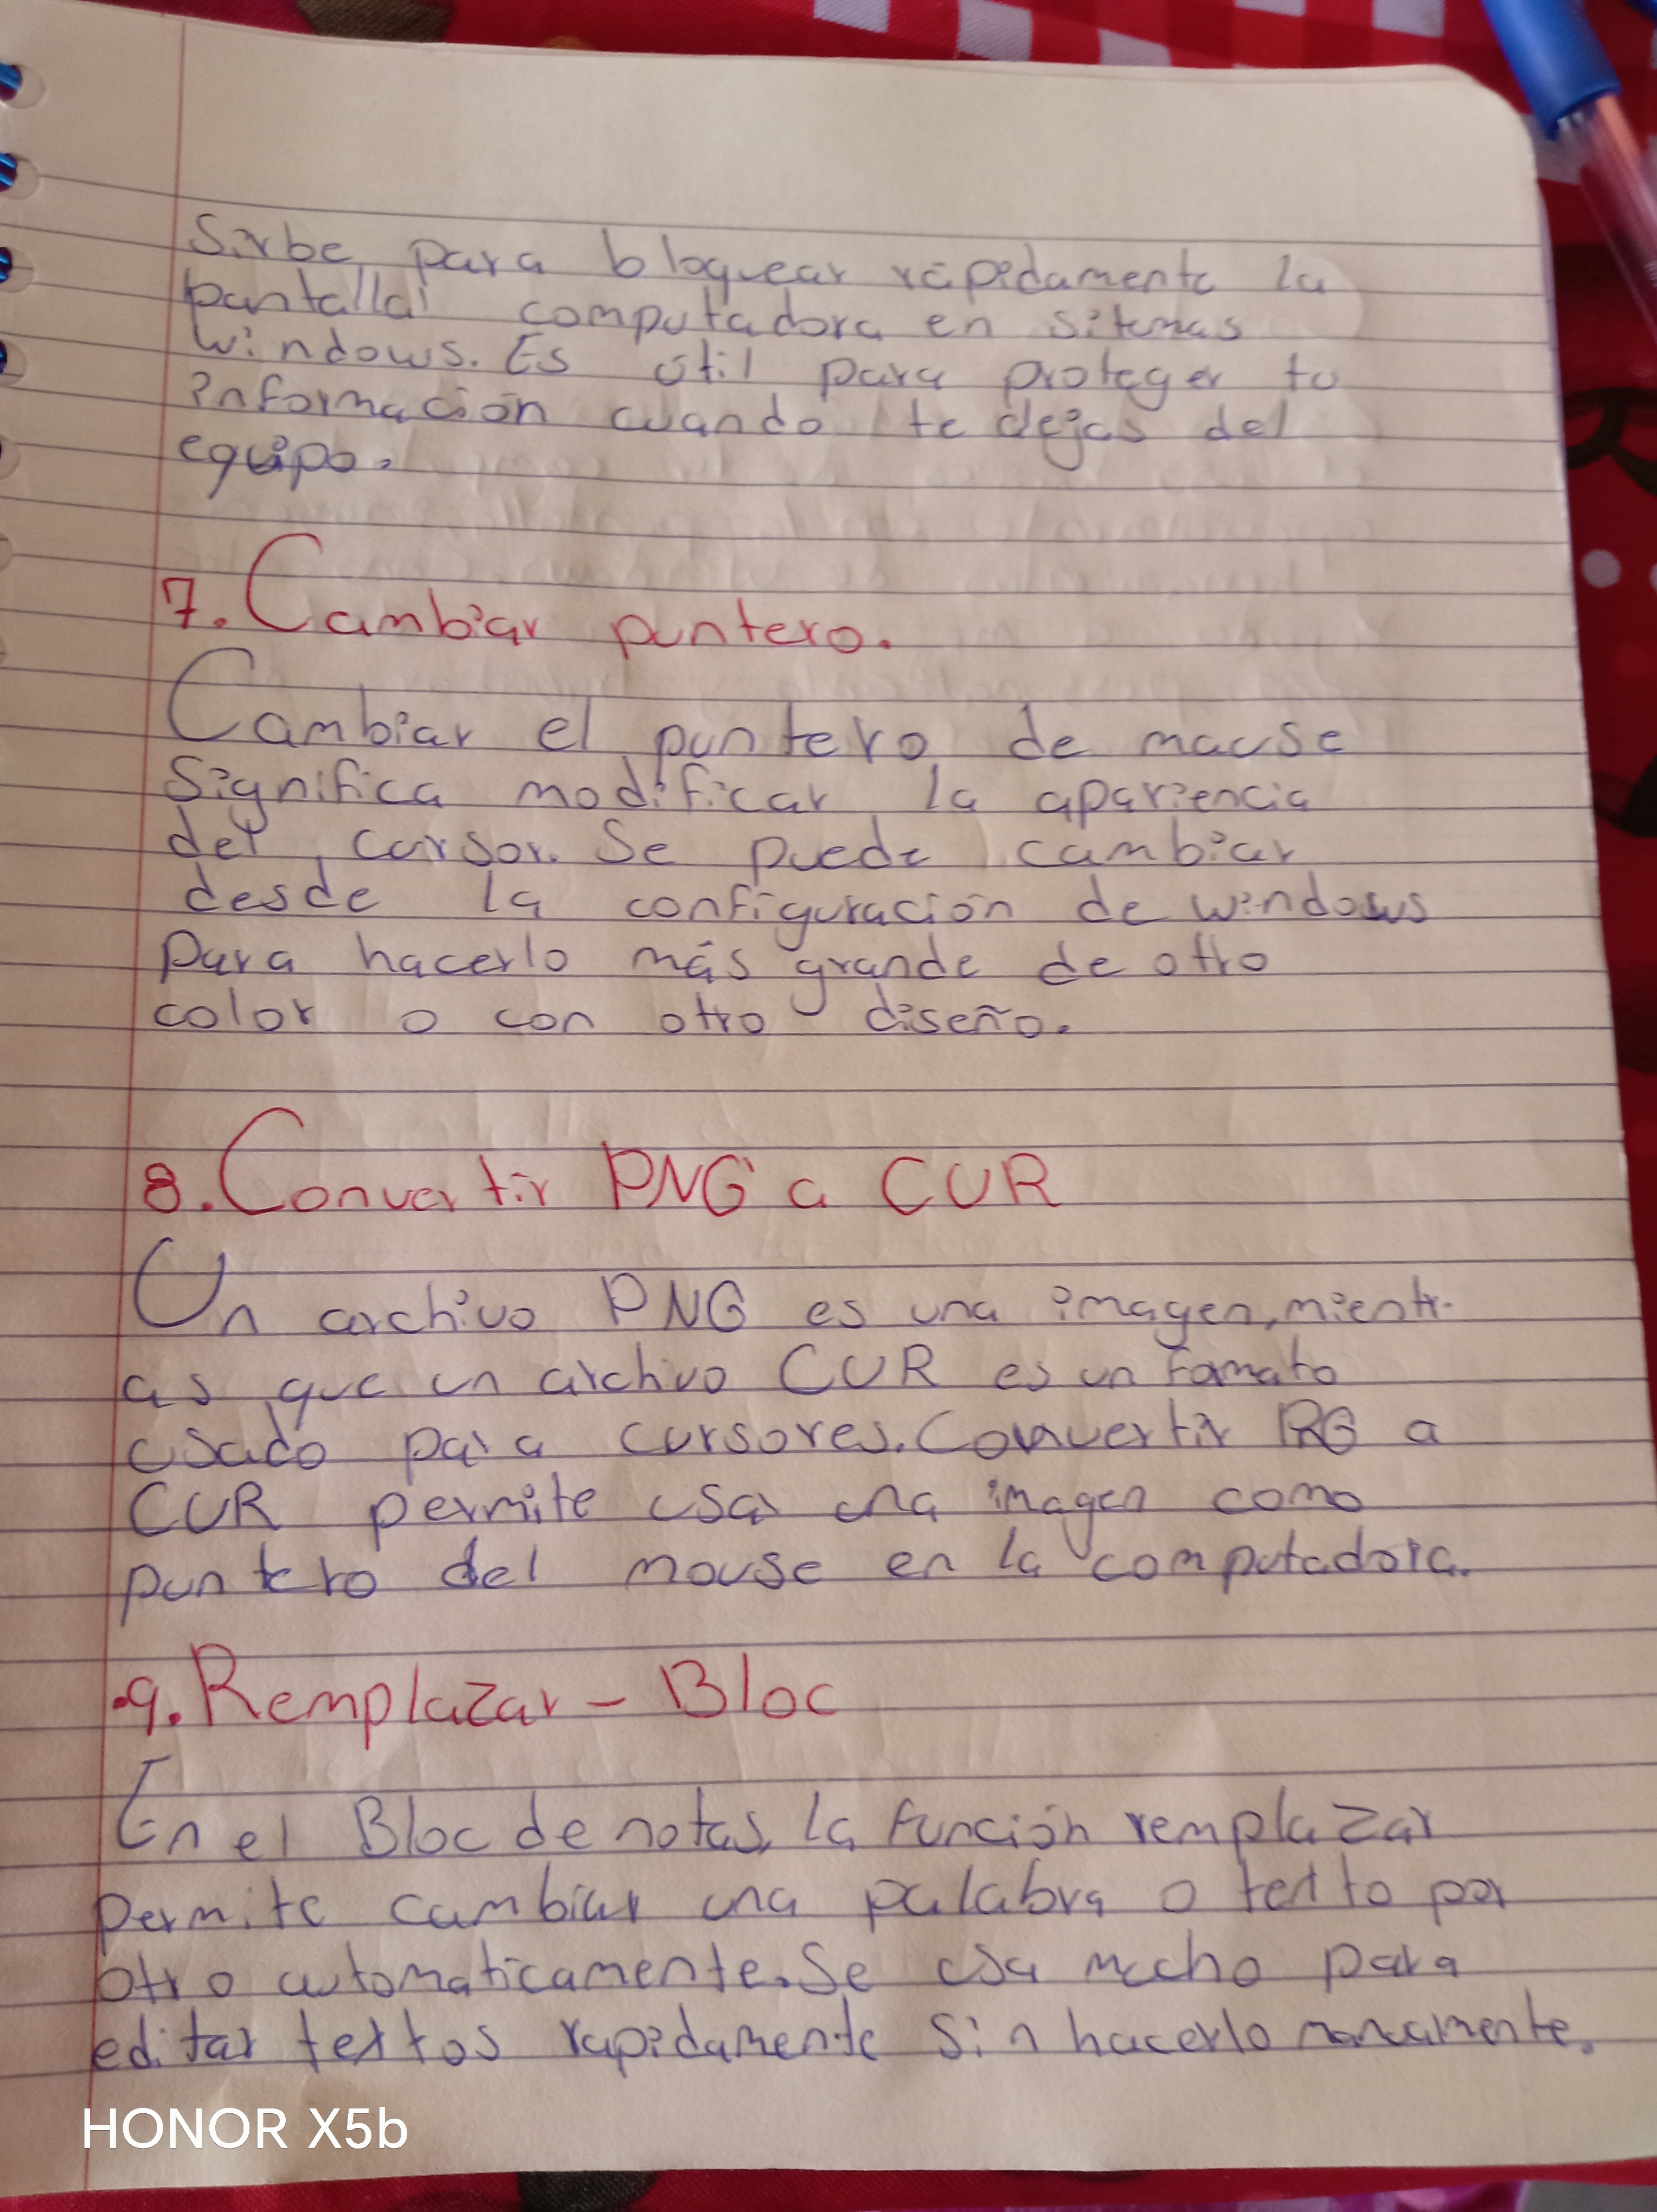 Sirbe para bloquear rápidamente la
pantalla computadora en sitemas
Windows. Es útil para proteger tu
información cuando te dejas del
equipo.
7. Cambiar puntero.
Cambiar el puntero de mause
significa modificar la apariencia
del cursor. Se puede cambiar
desde la configuración de windows
para hacerlo más grande de otro
color o con otro diseño.
8. Convertir PNG a CUR
Un archivo PNG es una imagen, mientr-
as que un archivo CUR es un fomato
usado para cursores. Convertir a
CUR permite usar una imagen como
puntero del mouse en la computadora.
9. Remplazar - Bloc
En el Bloc de notas, la función remplazar
permite cambiar una palabra o texto por
otro automaticamente. Se usa mucho para
editar textos rapidamente sin hacerlo
HONOR X5b